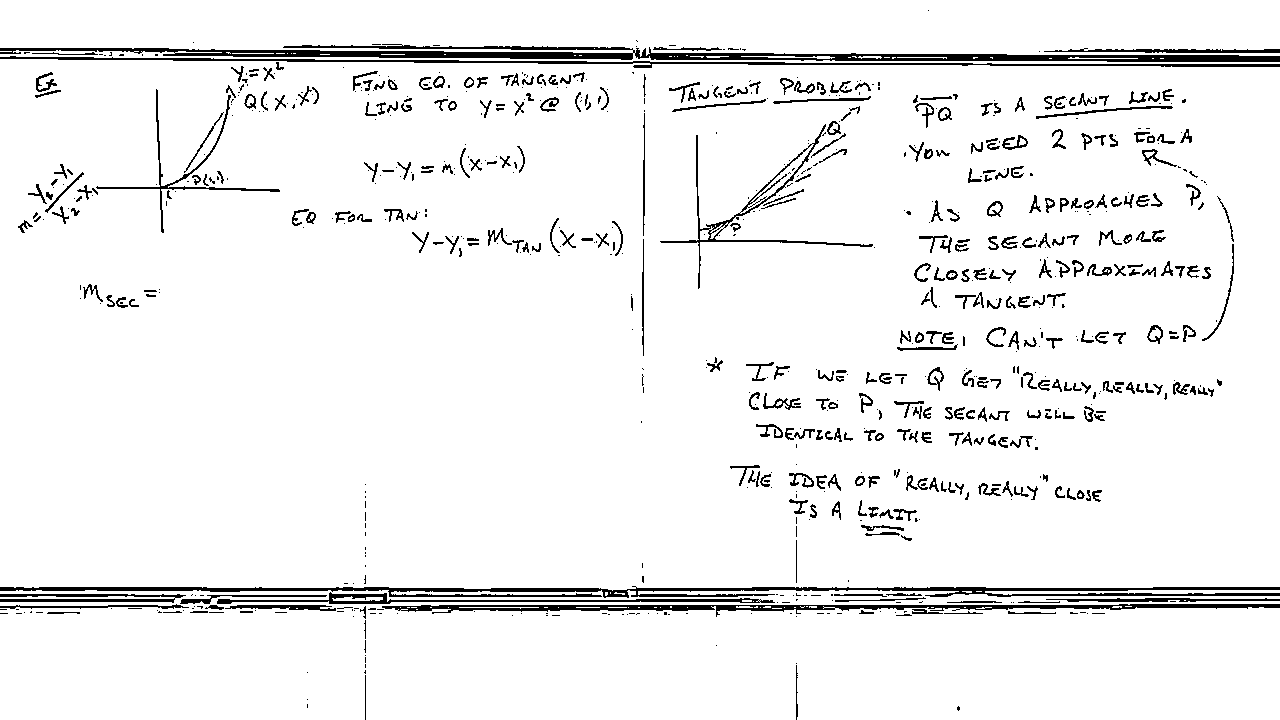 Ex
Y=X²
Q(X,X²)
P(1,1)
m=Y₂-Y₁/X₂-X₁
FIND EQ. OF TANGENT
LINE TO Y=X² @ (1,1)
Y-Y₁=m(X-X₁)
EQ FOR TAN:
Y-Y₁=M_TAN(X-X₁)
M_SEC=
TANGENT PROBLEM:
Q
P
PQ IS A SECANT LINE.
·YOU NEED 2 PTS FOR A
LINE.
· AS Q APPROACHES P,
THE SECANT MORE
CLOSELY APPROXIMATES
A TANGENT.
NOTE: CAN'T LET Q=P
* IF WE LET Q GET "REALLY, REALLY, REALLY"
CLOSE TO P, THE SECANT WILL BE
IDENTICAL TO THE TANGENT.
THE IDEA OF "REALLY, REALLY" CLOSE
IS A LIMIT.